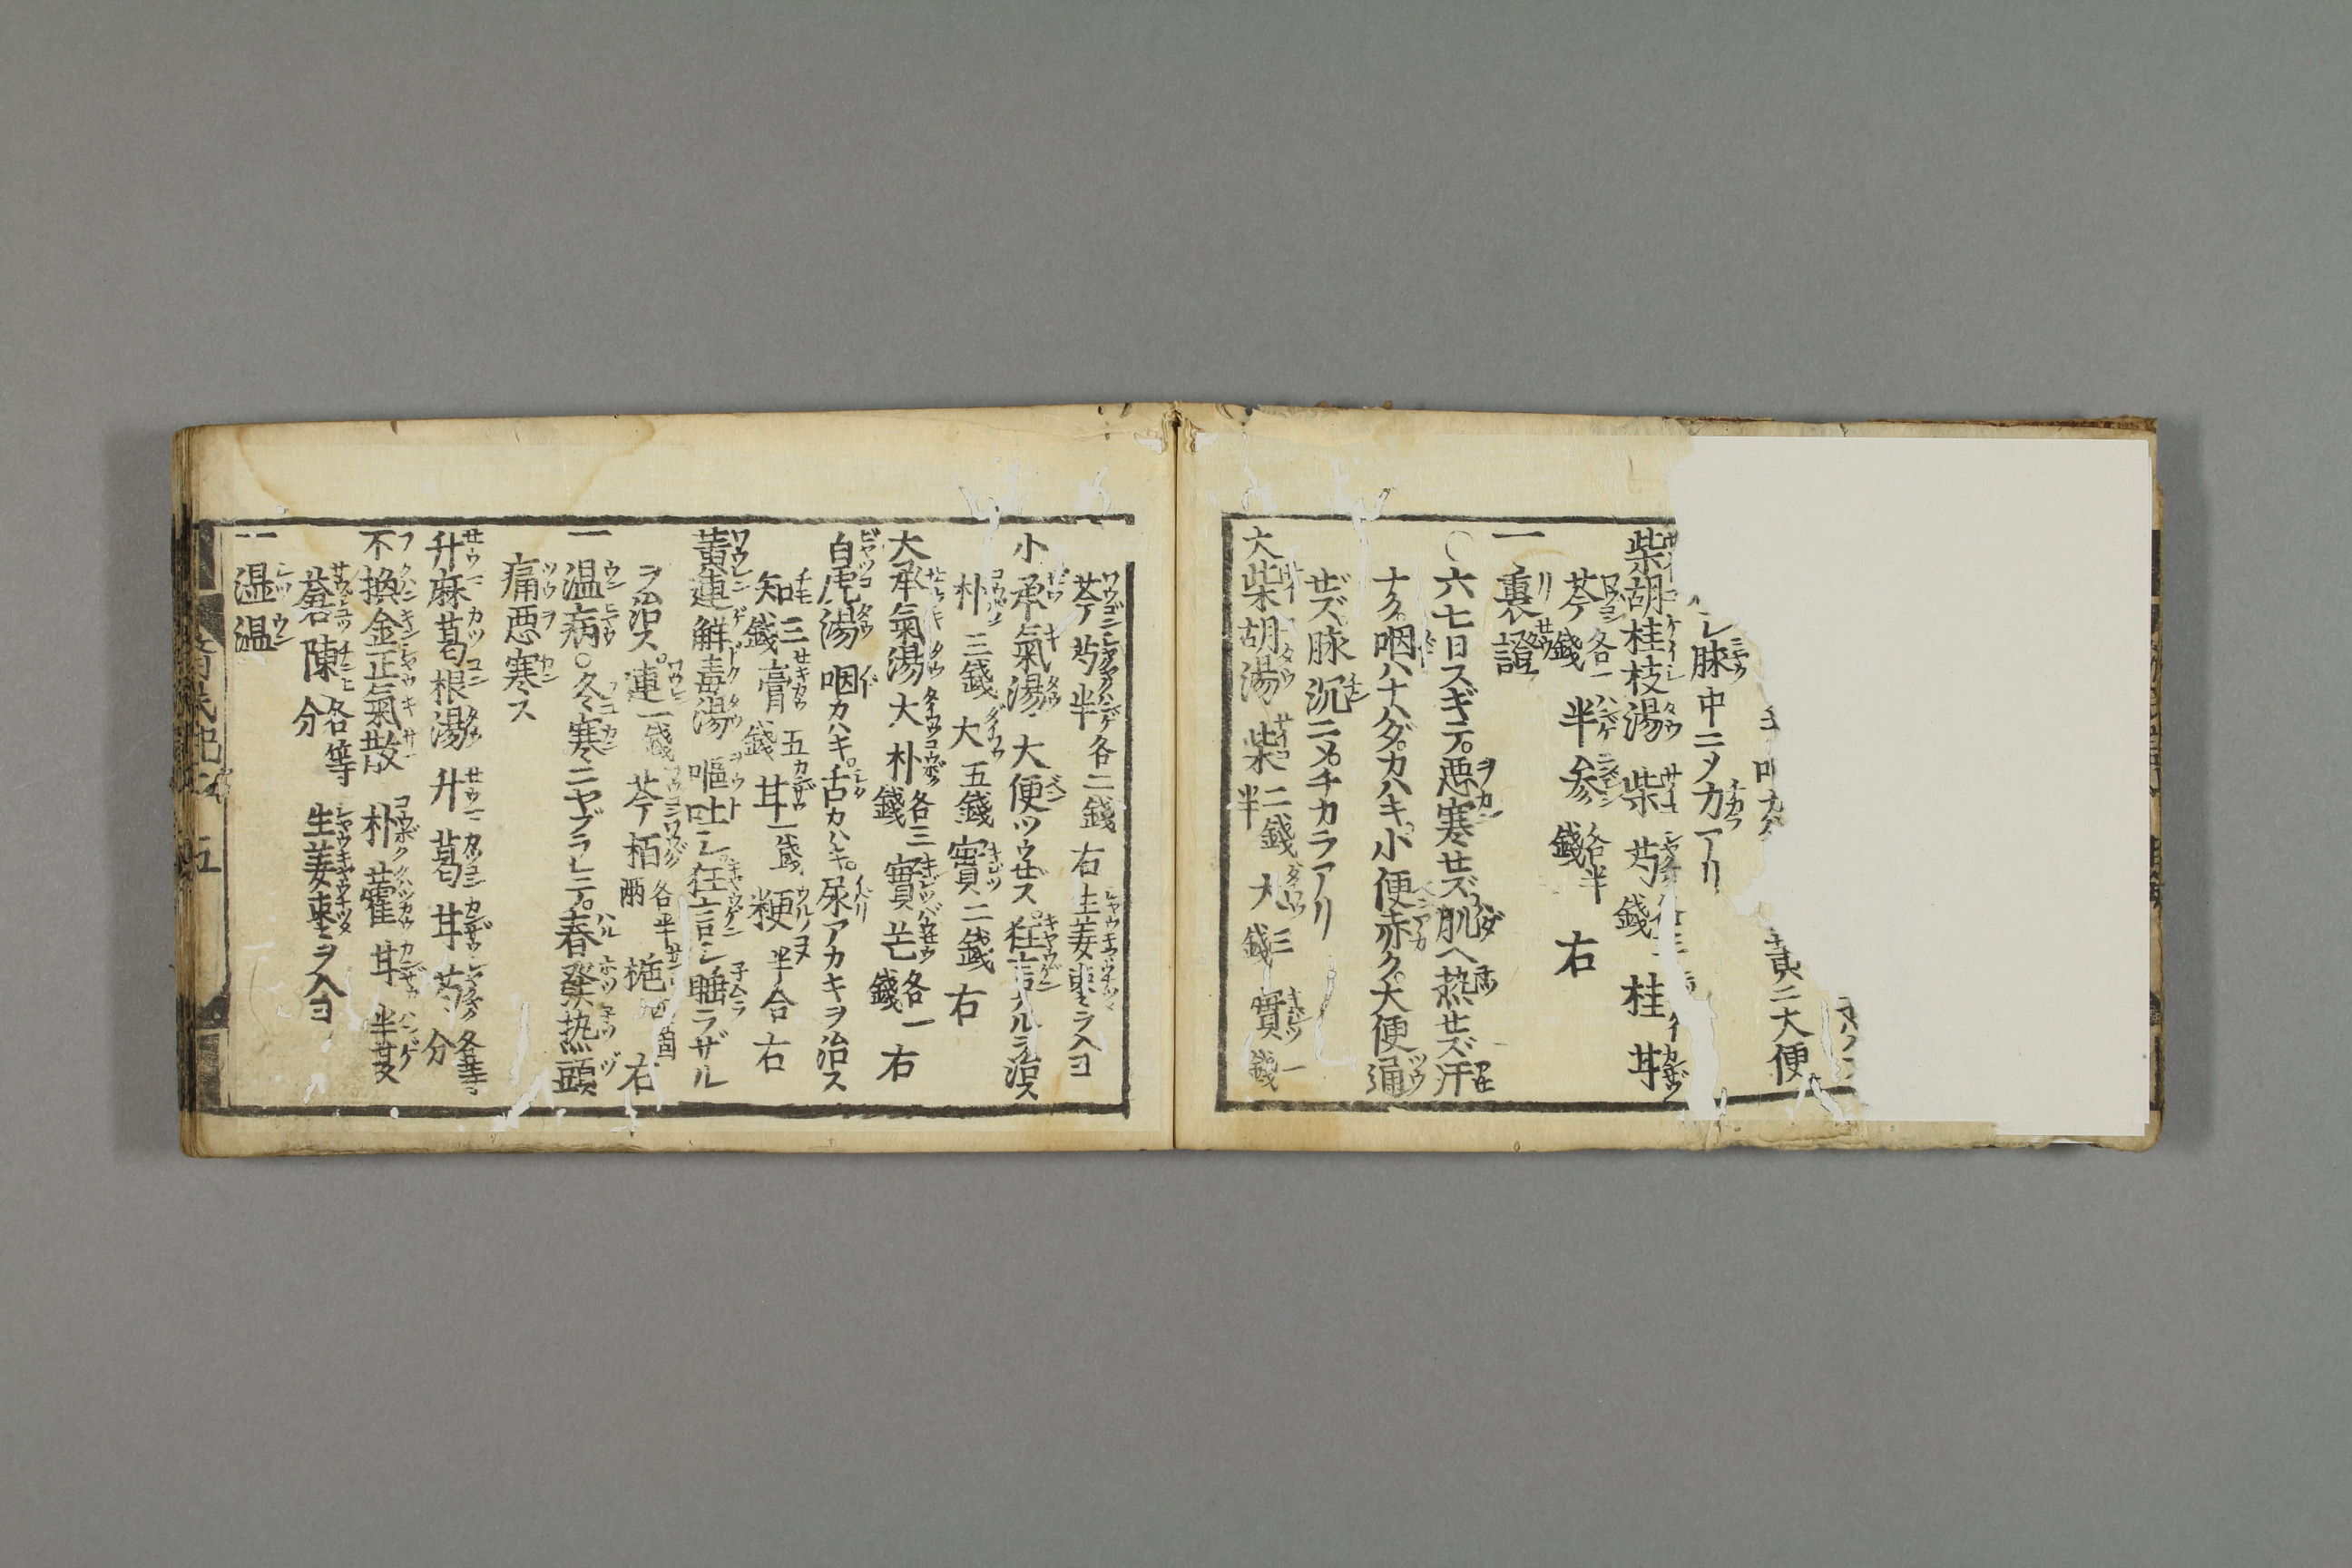 黄ニ大便
レ脉中ニメ力アリ
柴胡桂枝湯 柴 芍 錢 桂 甘
芩各一錢 半 参各半錢 右
一 裏證
○六七日スギテ。悪寒セズ肌ヘ热セズ汗
ナク。咽ハナハダ。カハキ。小便赤ク。大便通
ゼズ。脉沉ニメ。チカラアリ
大柴胡湯 柴二錢半 大三錢 實一錢
芩 芍 半各二錢 右生姜棗ヲ入ヨ
小承氣湯 大便ツウセズ。狂言スルヲ治ス
朴三錢 大五錢 實二錢 右
大承氣湯 大 朴各三錢 實 芒各一錢 右
白虎湯 咽カハキ。舌カハキ。尿アカキヲ治ス
知三錢 膏五錢 甘一錢 粳半合 右
黄連解毒湯 嘔吐シ。狂言シ睡ラザル
ヲ治ス。連一錢 芩 栢各半兩 梔 箇 右
一 温病。冬寒ニヤブラレテ。春發热頭
痛悪寒ス
升麻葛根湯 升 葛 甘 芍各等分
不換金正氣散 朴 藿 甘 半夏
蒼 陳各等分 生姜棗ヲ入ヨ
一 湿温
五